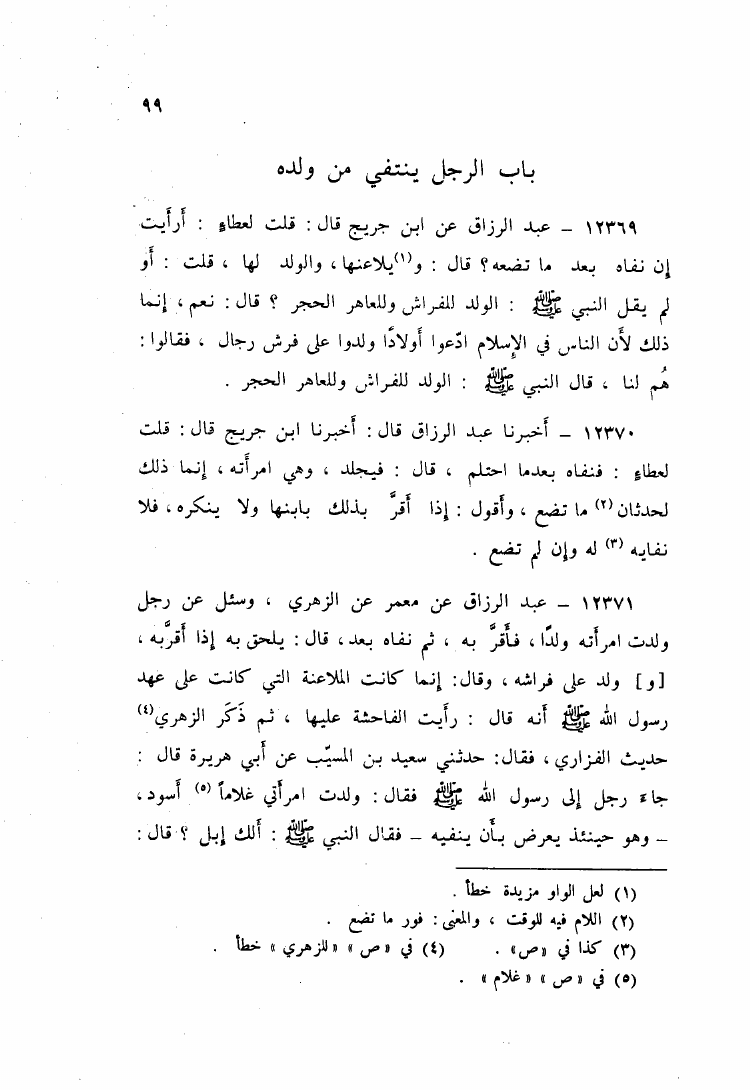 ٩٩
باب الرجل ينتفي من ولده
١٢٣٦٩ – عبد الرزاق عن ابن جريج قال : قلت لعطاءٍ : أرأَيت
إن نفاه بعد ما تضعه؟ قال : و(١)يلاعنها، والولد لها ، قلت : أَو
لم يقل النبي ﷺ : الولد للفراش وللعاهر الحجر ؟ قال : نعم ، إنما
ذلك لأَن الناس في الإسلام ادّعوا أولادًا ولدوا على فرش رجال ، فقالوا :
هُم لنا ، قال النبي ﷺ : الولد للفراش وللعاهر الحجر .
١٢٣٧٠ – أخبرنا عبد الرزاق قال : أخبرنا ابن جريج قال : قلت
لعطاءٍ : فنفاه بعدما احتلم ، قال : فيجلد ، وهي امرأته ، إنما ذلك
لحدثان (٢) ما تضع ، وأقول : إذا أَقرَّ بذلك بابنها ولا ينكره ، فلا
نفايه (٣) له وإن لم تضع .
١٢٣٧١ – عبد الرزاق عن معمر عن الزهري ، وسئل عن رجل
ولدت امرأته ولدًا ، فأَقرَّ به ، ثم نفاه بعد ، قال : يلحق به إذا أقرَّبه ،
[و] ولد على فراشه ، وقال : إنما كانت الملاعنة التي كانت على عهد
رسول الله ﷺ أنه قال : رأيت الفاحشة عليها ، ثم ذَكَر الزهري(٤)
حديث الفزاري ، فقال : حدثني سعيد بن المسيّب عن أبي هريرة قال :
جاءَ رجل إلى رسول الله ﷺ فقال : ولدت امرأتي غلاماً (٥) أسود ،
– وهو حينئذ يعرض بأن ينفيه – فقال النبي ﷺ : أَلك إبل ؟ قال :
(١) لعل الواو مزيدة خطأ .
(٢) اللام فيه للوقت ، والمعنى : فور ما تضع .
(٣) كذا في «ص» . (٤) في «ص» «للزهري» خطأ .
(٥) في «ص» «غلام» .